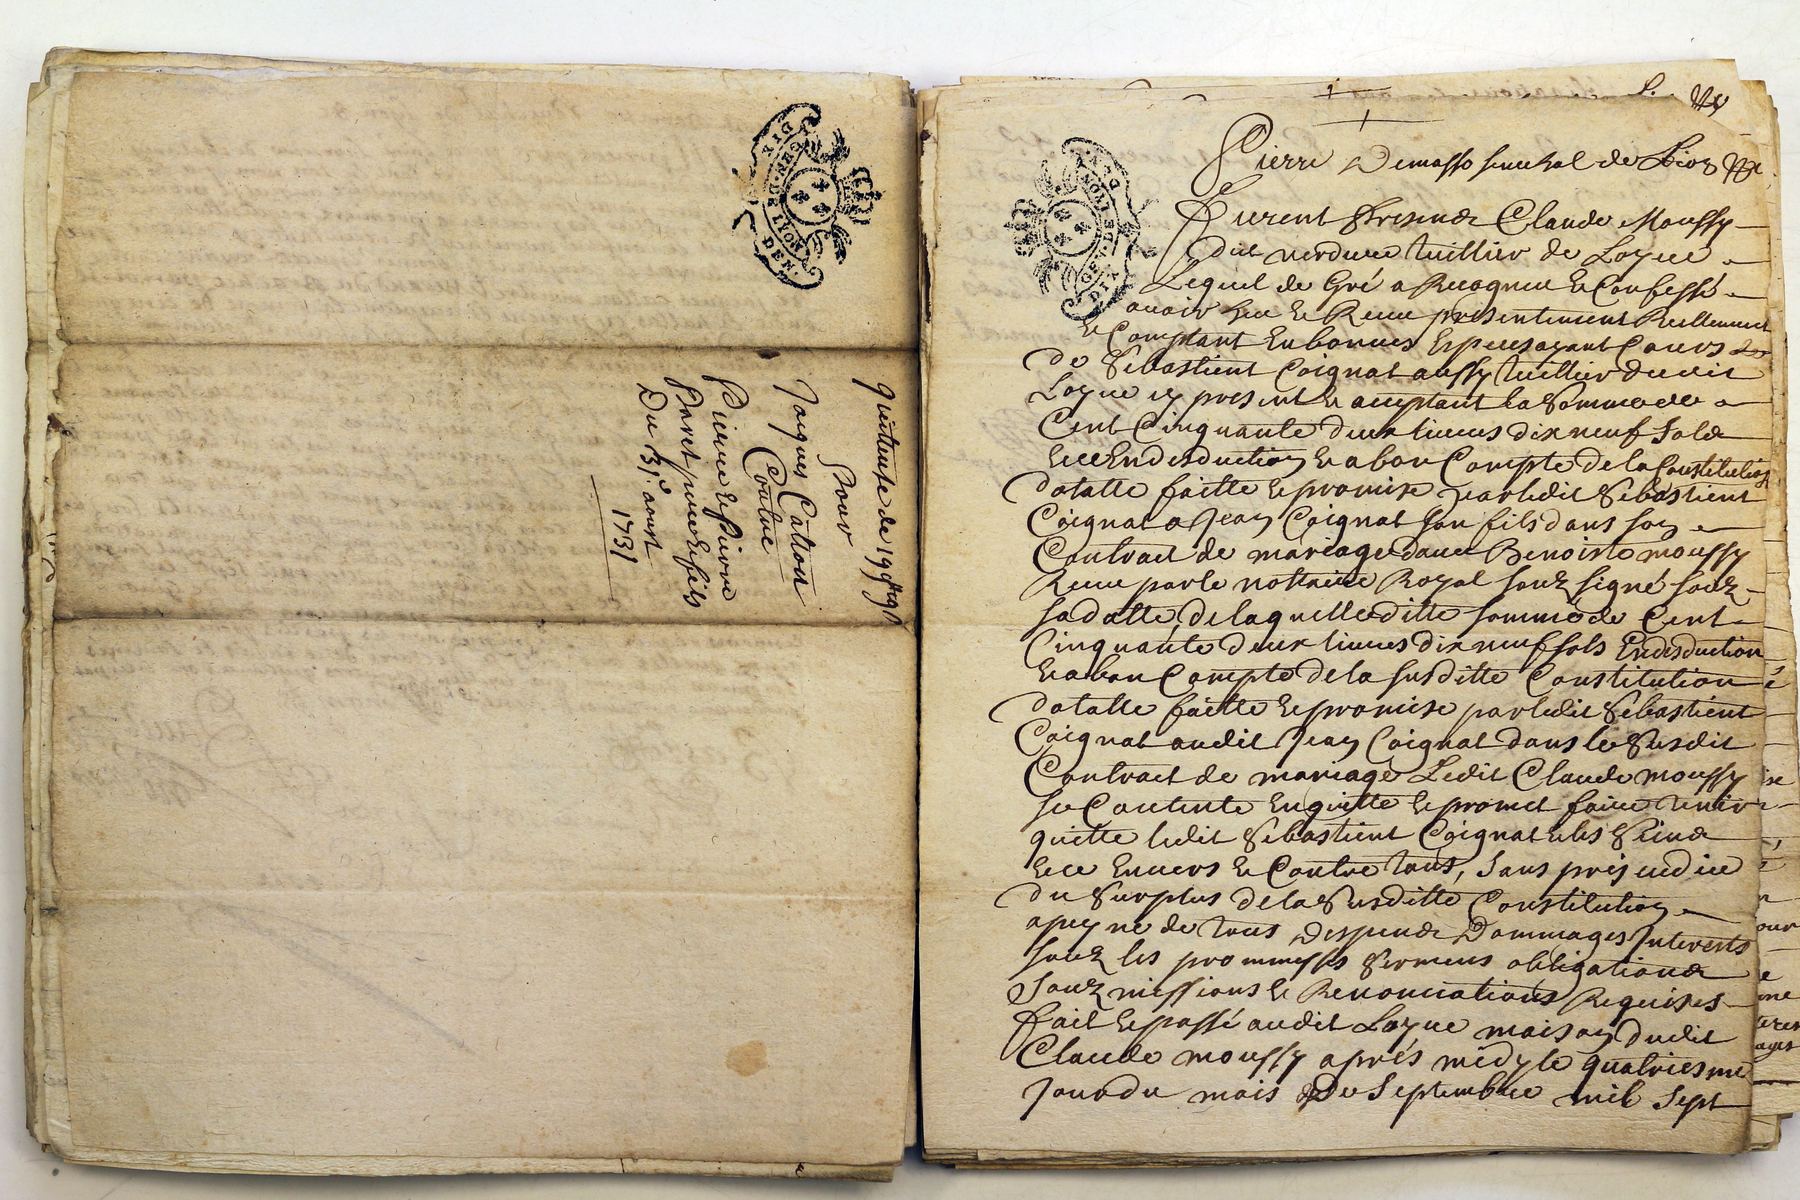 GEN·DE LYON
DEN·
quittance de 19
pour
Jacques Catton
Contre
Pierre et Pierre
Baret pere et fils
Du 13e. aoust
1731
GEN·DE LYON
Pierre Demasso senechal de Lion
Furent Presends Claude Moussy
dit verdure tuillier de Loyse
Lequel de Gré a Recognue et Confessé
avoir heu et Receu presentement Reellement
et Comptant En bonnes Especes ayant Cours
de Sebastient Coignat aussy tuillier dudit
Loyse icy present et acceptant la Somme de
Cent Cinquante deux livres dix neuf Sols
Et ce En desduction et a bon Compte de la Constitution
dotalle faitte et promise par ledit Sebastient
Coignat a Jean Coignat son fils dans son
Contract de mariage avec Benoiste moussy
Receu par le nottaire Royal souz signé souz
sa datte, de laquelle ditte somme de Cent
Cinquante deux livres dix neuf sols En desduction
et a bon Compte de la susditte Constitution
dotalle faitte et promise par ledit Sebastient
Coignat audit Jean Coignat dans le Susdit
Contract de mariage Ledit Claude moussy
se Contente En quitte et promet faire tenir
quitte ledit Sebastient Coignat et les Siens
et ce Envers et Contre tous, Sans prejudice
du Surplus de la Susditte Constitution
a peyne de tous despends Dommages Interests
souz les prommesses Sermens obligations
Souzmissions et Renonciations Requises
fait et passé audit Loyse maison dudit
Claude moussy aprés midy le quatriesme
Jour du mois De Septembre mil Sept